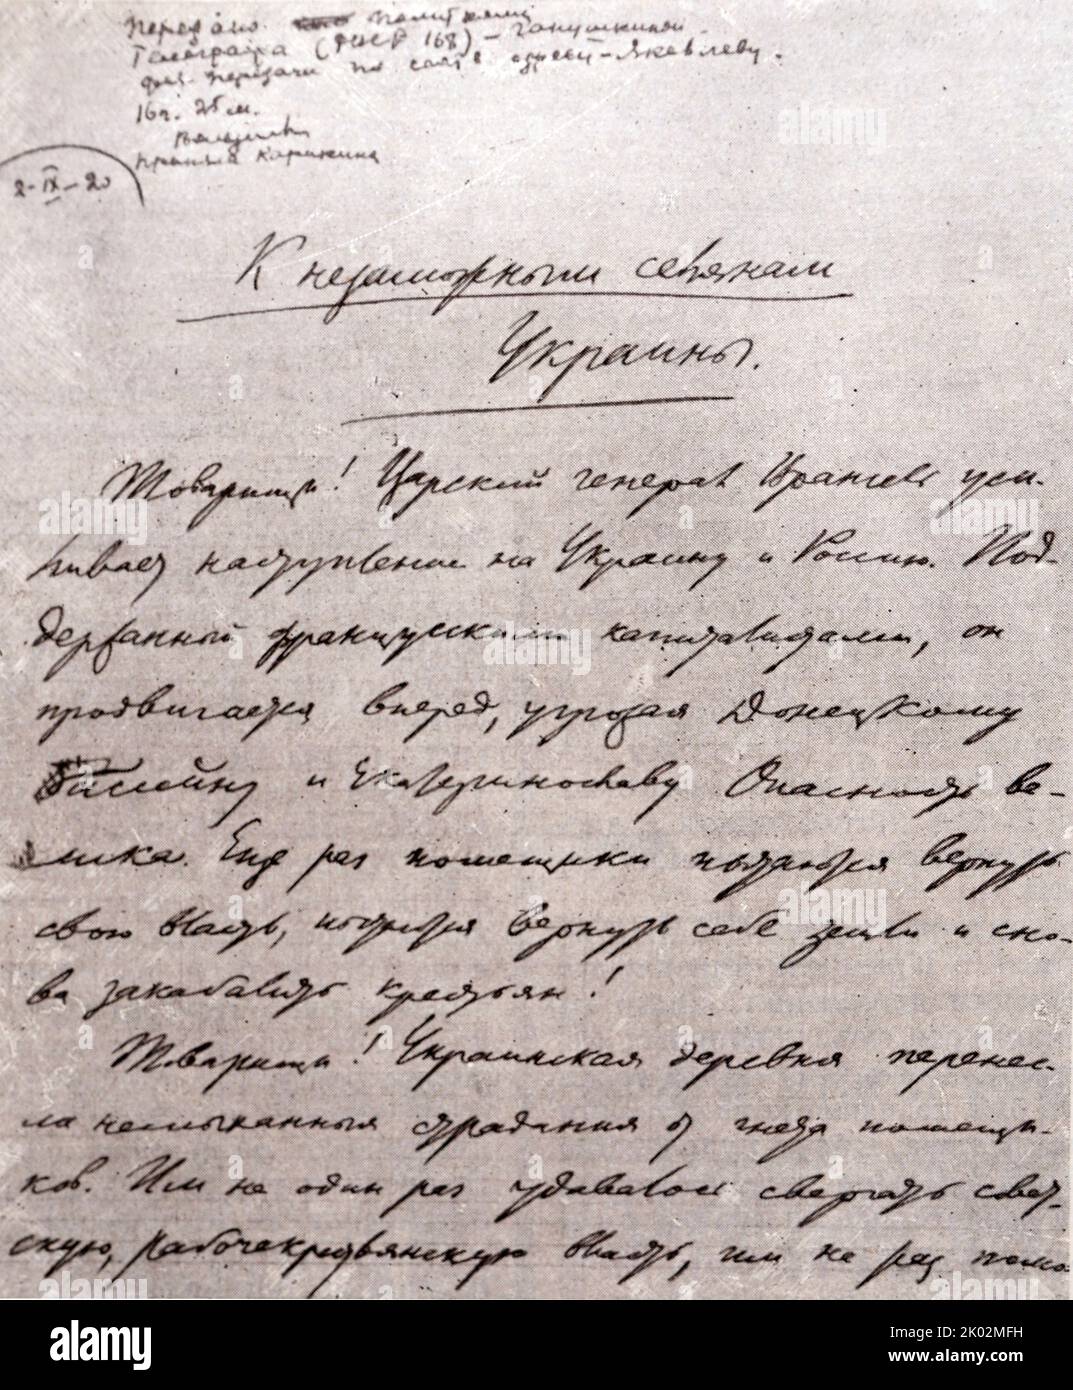 Передано политкому
Телеграфа (РВСР 168) –
для передачи по –Яковлеву.
16 ч. 25 м.
приняла
2-IX-20
К незаможным селянам
Украины.
Товарищи! Царский генерал Врангель уси-
ливает наступление на Украину и Россию. Под-
держанный французскими капиталистами, он
продвигается вперед, угрожая Донецкому
бассейну и Екатеринославу Опасность ве-
лика. Еще раз помещики пытаются вернуть
свою власть, пытаются вернуть себе земли и сно-
ва закабалить крестьян!
Товарищи! Украинская деревня перенес-
ла неслыханные страдания от гнета помещи-
ков. Им не один раз удавалось свергать совет-
скую, рабочекрестьянскую власть, им не раз помо-
alamy
Image ID: 2K02MFH
www.alamy.com